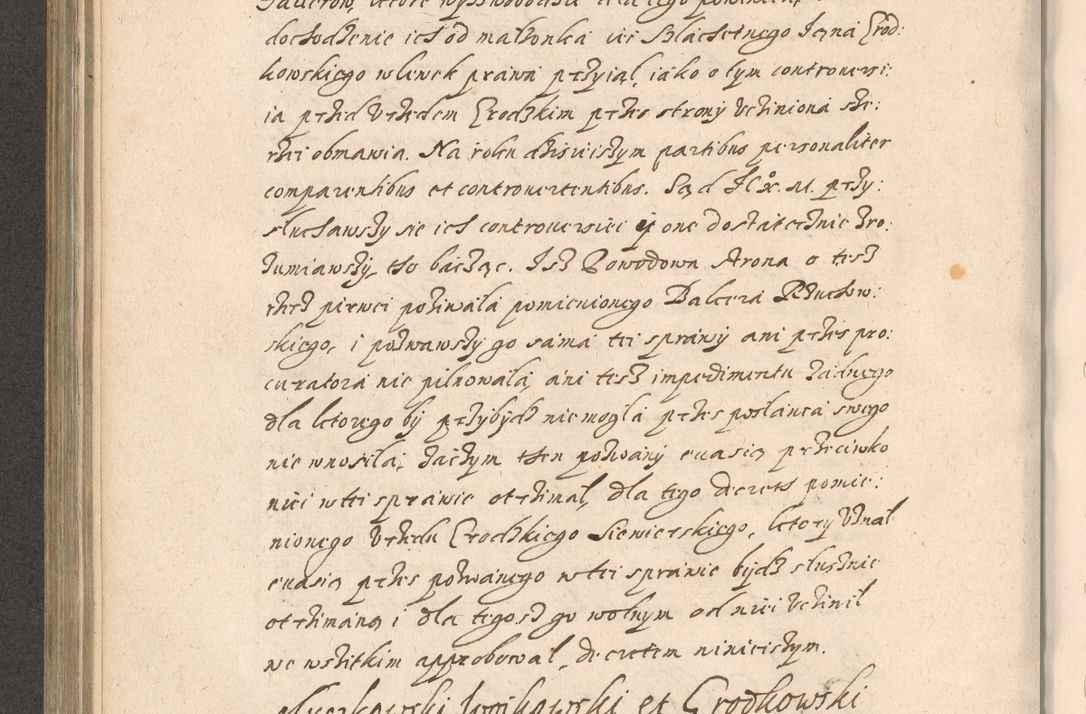 dochodzenie ich od małżonka iei Szlachetnego Jana Grod:
kowskiego wlewek prawa przyiął, iako o tym controwersi:
ia przed Urzędem Grodzkim przes strony uczyniona sze:
rzei obmawia. Na roku dzisieiszym partibus personaliter
comparentibus et controuertentibus. Sąd JKX. M. przy:
słuchawszy sie ich controuersiei y one dostatecznie zro:
zumiawszy, tho bacząc. Isz Powodowa strona o tesz
rzecz pirwei pozwała pomienionego Balcera Rzuchow:
skiego, i pozwawszy go sama tei sprawy ani przes pro:
curatora nie pilnowała, ani tesz impedimentu żadnego
dla ktorego by przybydz nie mogła przes posłańca swego
nie wnosiła; zaczym then pozwany euasią przeciwko
niei w tei sprawie otrzimał, dla tego decreth pomie:
nionego Urzędu Grodzkiego Siewierskiego, ktory uznał
euasią przes pozwanego w tei sprawie bydz słusznie
otrzimaną i dla tegosz go wolnym od niei uczinił
we wszitkim approbował, decretem ninieiszym.
et Grodkowski